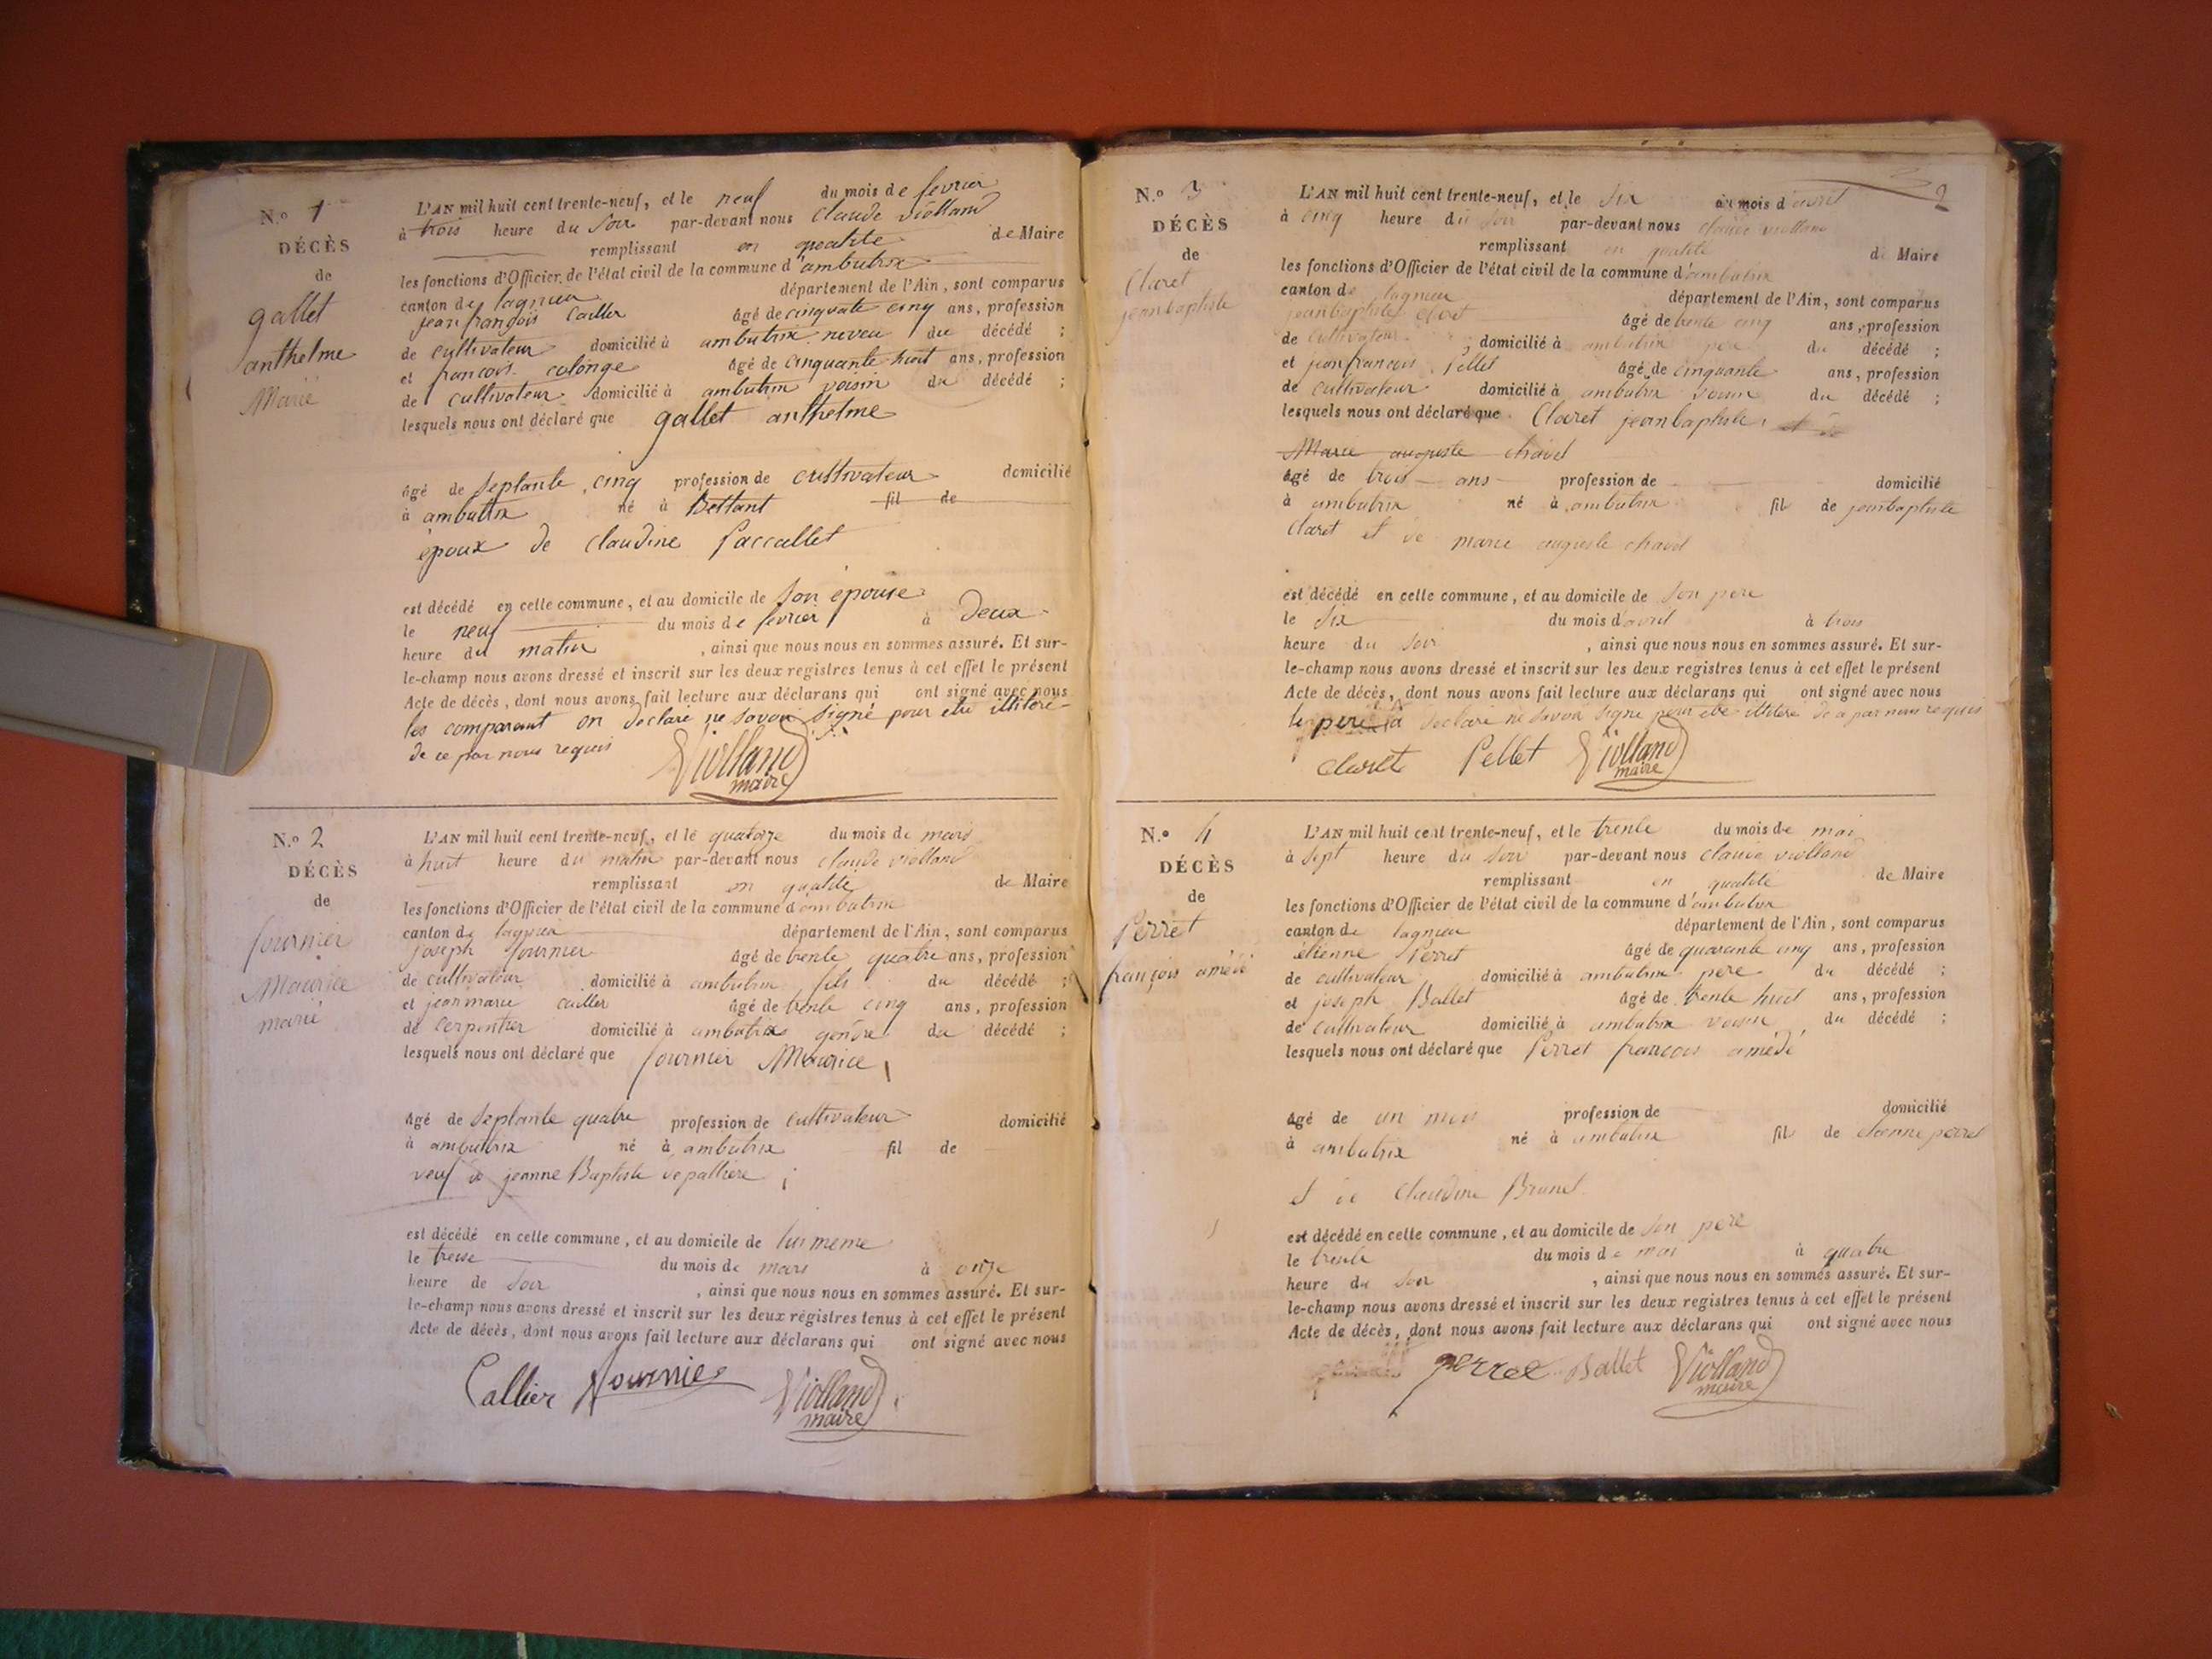 N.o 1
DÉCÈS
de
gallet
anthelme
Marié
L'AN mil huit cent trente-neuf, et le neuf du mois de fevrier
à trois heure du soir par-devant nous claude violland
remplissant en qualité de Maire
les fonctions d'Officier de l'état civil de la commune d'ambutrix
canton de lagnieu département de l'Ain, sont comparus
jean françois cailler âgé de cinquate cinq ans, profession
de cultivateur domicilié à ambutrix neveu du décédé ;
et francois colonge âgé de cinquante huit ans, profession
de cultivateur domicilié à ambutrix voisin du décédé ;
lesquels nous ont déclaré que gallet anthelme
âgé de septante cinq profession de cultivateur domicilié
à ambutrix né à Bettant fil de
époux de claudine Paccallet
est décédé en cette commune, et au domicile de son épouse
le neuf du mois de fevrier à deux
heure du matin , ainsi que nous nous en sommes assuré. Et sur-
le-champ nous avons dressé et inscrit sur les deux registres tenus à cet effet le présent
Acte de décès, dont nous avons fait lecture aux déclarans qui ont signé avec nous
les comparant on declare ne savoir signé pour etre illitere
de ce par nous requis Violland
maire
N.o 2
DÉCÈS
de
fournier
Maurice
marié
L'AN mil huit cent trente-neuf, et le quatorze du mois de mars
à huit heure du matin par-devant nous claude violland
remplissant en qualité de Maire
les fonctions d'Officier de l'état civil de la commune d'ambutrix
canton de lagnieu département de l'Ain, sont comparus
joseph fournier âgé de trente quatre ans, profession
de cultivateur domicilié à ambutrix fils du décédé ;
et jean marie cailler âgé de trente cinq ans, profession
de cerpentier domicilié à ambutrix gendre du décédé ;
lesquels nous ont déclaré que fournier Maurice
âgé de septante quatre profession de cultivateur domicilié
à ambutrix né à ambutrix fil de
veuf de jeanne Baptiste depalliere
est décédé en cette commune, et au domicile de lui meme
le treise du mois de mars à onze
heure de soir , ainsi que nous nous en sommes assuré. Et sur-
le-champ nous avons dressé et inscrit sur les deux registres tenus à cet effet le présent
Acte de décès, dont nous avons fait lecture aux déclarans qui ont signé avec nous
Callier fournier Violland
maire
2
N.o 3
DÉCÈS
de
Claret
jeanbaptiste
L'AN mil huit cent trente-neuf, et le six du mois d'avril
à cinq heure du soir par-devant nous claude violland
remplissant en qualité de Maire
les fonctions d'Officier de l'état civil de la commune d'ambutrix
canton de lagnieu département de l'Ain, sont comparus
jeanbaptiste claret âgé de trente cinq ans, profession
de cultivateur domicilié à ambutrix pere du décédé ;
et jeanfrancois Pellet âgé de cinquante ans, profession
de cultivateur domicilié à ambutrix voisin du décédé ;
lesquels nous ont déclaré que Claret jeanbaptiste et de
Marie auguste chavel
âgé de trois ans profession de domicilié
à ambutrix né à ambutrix fil de jeanbaptiste
Claret et de marie auguste chavel
est décédé en cette commune, et au domicile de son pere
le six du mois d'avril à trois
heure du soir , ainsi que nous nous en sommes assuré. Et sur-
le-champ nous avons dressé et inscrit sur les deux registres tenus à cet effet le présent
Acte de décès, dont nous avons fait lecture aux déclarans qui ont signé avec nous
le pere a declaré ne savoir signe pour etre illitere de ce par nous requis
claret Pellet Violland
maire
N.o 4
DÉCÈS
de
Perret
françois amédé
L'AN mil huit cent trente-neuf, et le trente du mois de mai
à sept heure du soir par-devant nous claude violland
remplissant en qualité de Maire
les fonctions d'Officier de l'état civil de la commune d'ambutrix
canton de lagnieu département de l'Ain, sont comparus
étienne Perret âgé de quarante cinq ans, profession
de cultivateur domicilié à ambutrix pere du décédé ;
et joseph Ballet âgé de trente huit ans, profession
de cultivateur domicilié à ambutrix voisin du décédé ;
lesquels nous ont déclaré que Perret francois amédé
âgé de un mois profession de domicilié
à ambutrix né à ambutrix fil de etienne perret
et de Claudine Brunet
est décédé en cette commune, et au domicile de son pere
le trente du mois de mai à quatre
heure du soir , ainsi que nous nous en sommes assuré. Et sur-
le-champ nous avons dressé et inscrit sur les deux registres tenus à cet effet le présent
Acte de décès, dont nous avons fait lecture aux déclarans qui ont signé avec nous
perret Ballet Violland
maire